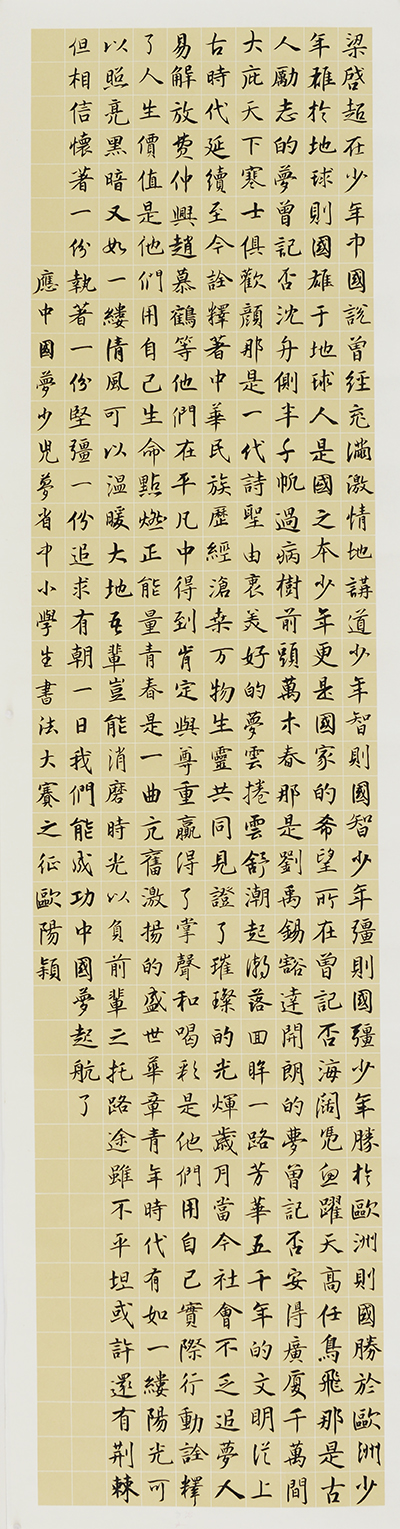 梁啓超在少年中國說曾經充滿激情地講道少年智則國智少年彊則國彊少年勝於歐洲則國勝於歐洲少
年雄於地球則國雄于地球人是國之本少年更是國家的希望所在曾記否海闊凭魚躍天高任鳥飛那是古
人勵志的夢曾記否沈舟側半千帆過病樹前頭萬木春那是劉禹錫豁達開朗的夢曾記否安得廣廈千萬間
大庇天下寒士俱歡顏那是一代詩聖由衷美好的夢雲捲雲舒潮起潮落回眸一路芳華五千年的文明從上
古時代延續至今詮釋著中華民族歷經滄桑万物生靈共同見證了璀璨的光煇歲月當今社會不乏追夢人
易解放費仲興趙慕鶴等他們在平凡中得到肯定與尊重贏得了掌聲和喝彩是他們用自己實際行動詮釋
了人生價值是他們用自己生命點燃正能量青春是一曲亢奮激揚的盛世華章青年時代有如一縷陽光可
以照亮黑暗又如一縷清風可以溫暖大地吾輩豈能消磨時光以負前輩之托路途雖不平坦或許還有荊棘
但相信懷著一份執著一份堅彊一份追求有朝一日我們能成功中國夢起航了
應中國夢少兒夢省中小學生書法大賽之征歐陽穎